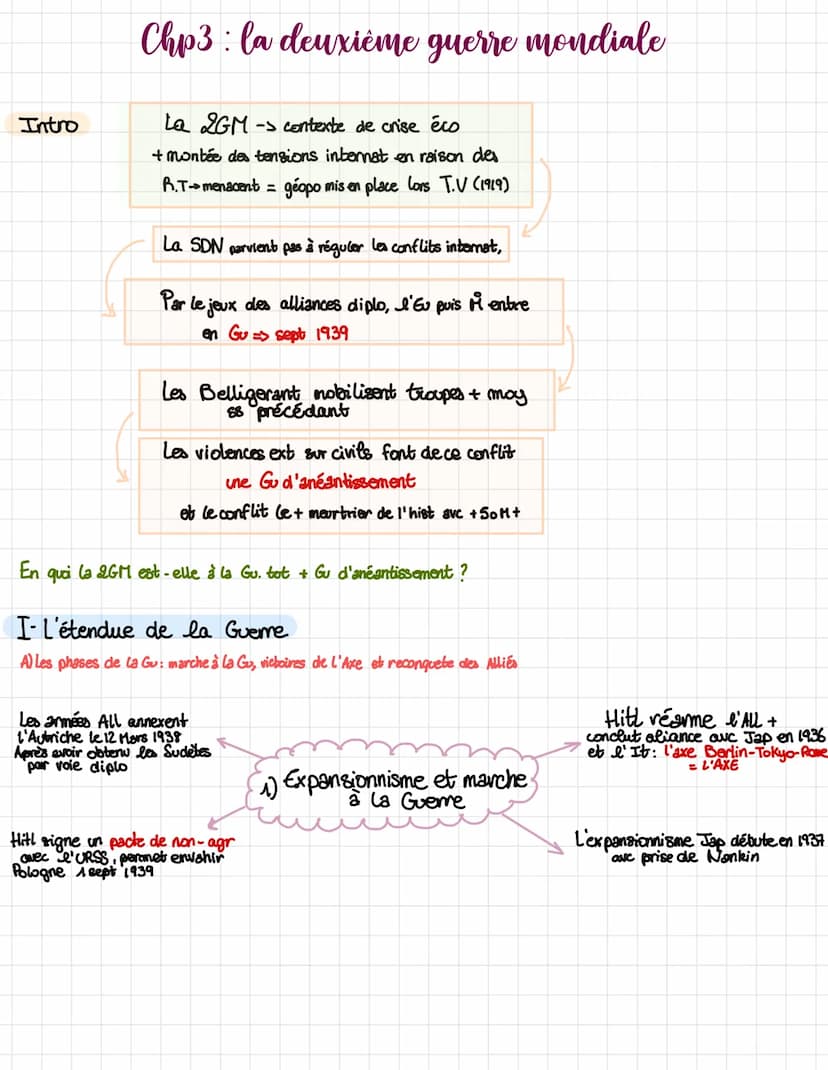 Chp3 : la deuxième guerre mondiale
Intro
La 2GM -> contexte de crise éco
+ montée des tensions internat en raison des
R.T→menacent = géopo mis en place lors T.V (1919)
La SDN parvient pas à réguler les conflits internat,
Par le jeux des alliances diplo, l'Eu puis M entre
en Gu => sept 1939
Les Belligerant mobilisent troupes + moy
ss précédant
Les violences ext sur civils font de ce conflit
une Gu d'anéantissement
et le conflit le + meurtrier de l'hist avc +50M+
En quoi la 2GM est-elle à la Gu. tot + Gu d'anéantissement ?
I- L'étendue de la Guerre
A) Les phases de la Gu : marche à la Gu, victoires de l'Axe et reconquete des Alliés
Les armées All annexent
l'Autriche le 12 Mars 1938
Après avoir obtenu les Sudètes
par voie diplo
Hitl réarme l'ALL +
conclut aliance avc Jap en 1936
et l'It : l'axe Berlin-Tokyo-Rome
= L'AXE
1) Expansionnisme et marche
à la Guerre
Hitl signe un pacte de non-agr
avec l'URSS, permet envahir
Pologne 1 sept 1939
L'expansionnisme Jap débute en 1937
avc prise de Nankin